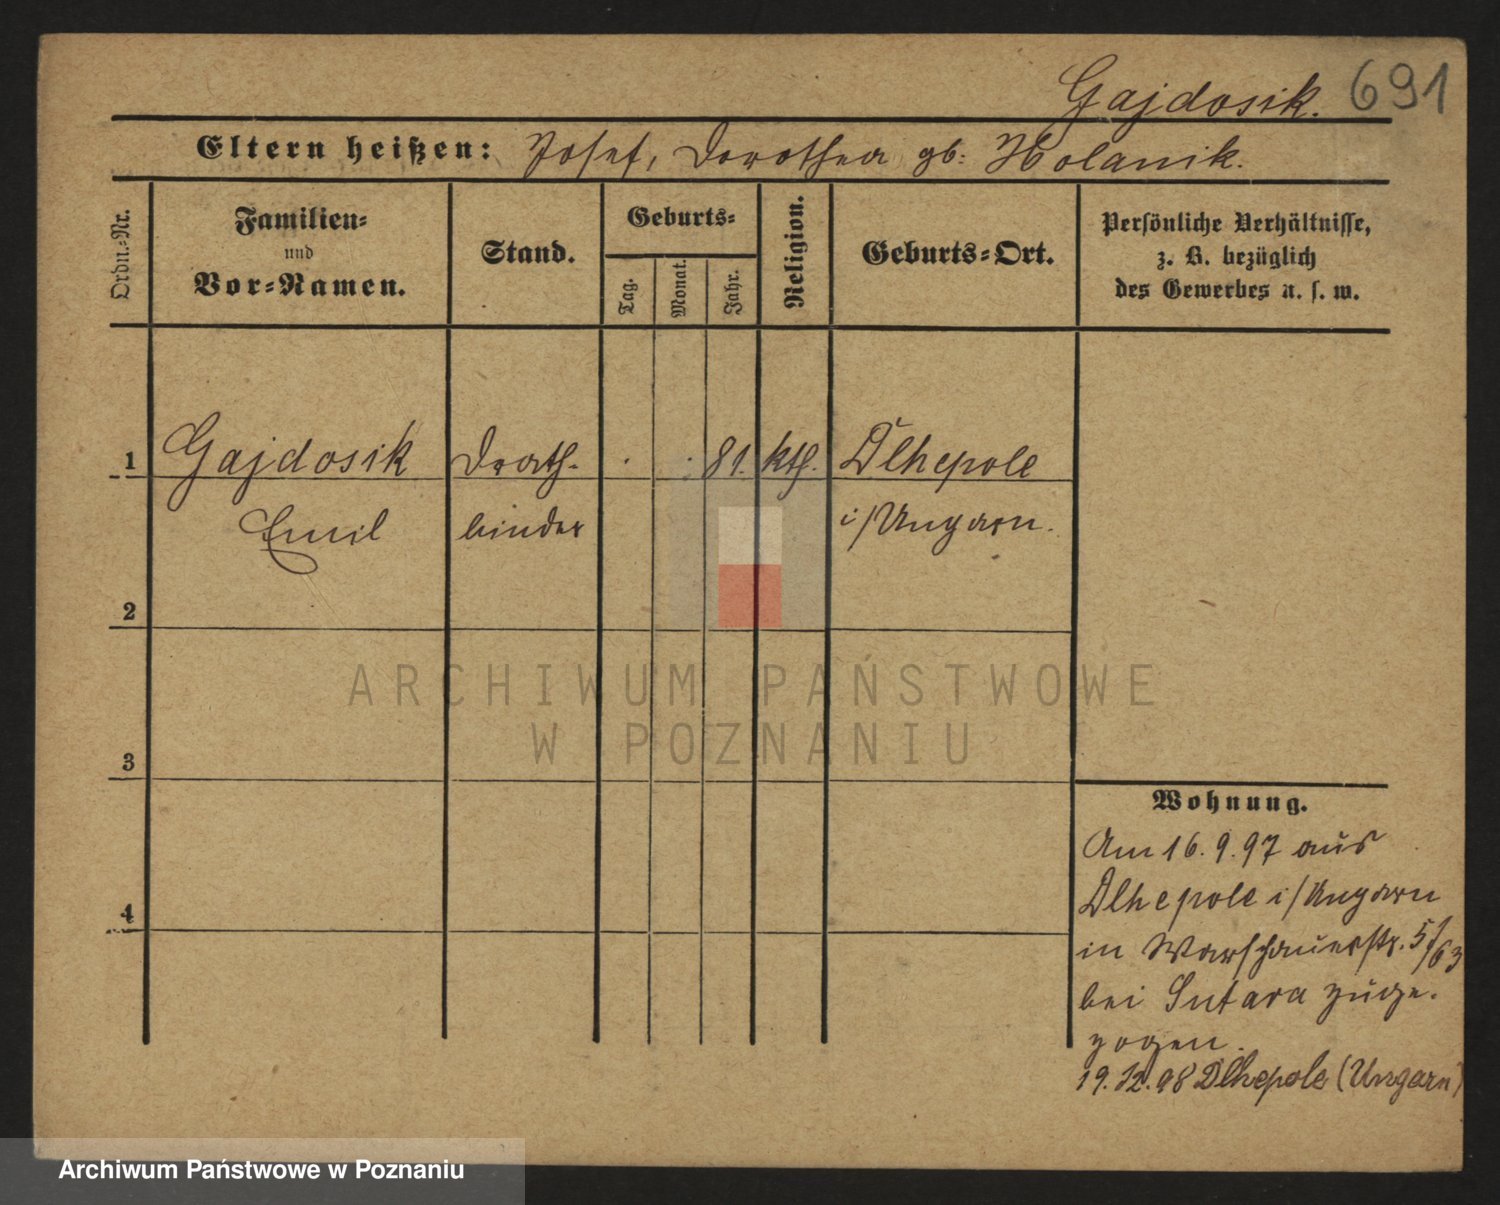 Gajdosik. 691
Eltern heißen: Josef, Dorothea gb: Holanik.
Ordn.=Nr.
Familien=
und
Vor=Namen.
Stand.
Geburts=
Tag.
Monat.
Jahr.
Religion.
Geburts=Ort.
Persönliche Verhältnisse,
z. B. bezüglich
des Gewerbes u. s. w.
1 Gajdosik Drath- . . 81. kth. Dlhepole
Emil binder i/Ungarn.
2
3
4
ARCHIWUM PAŃSTWOWE
W POZNANIU
Wohnung.
Am 16. 9. 97 aus
Dlhepole i/Ungarn
in Warschauerstr. 5/63
bei Sutara zuge-
zogen.
19. 12. 98 Dlhepole (Ungarn)
Archiwum Państwowe w Poznaniu